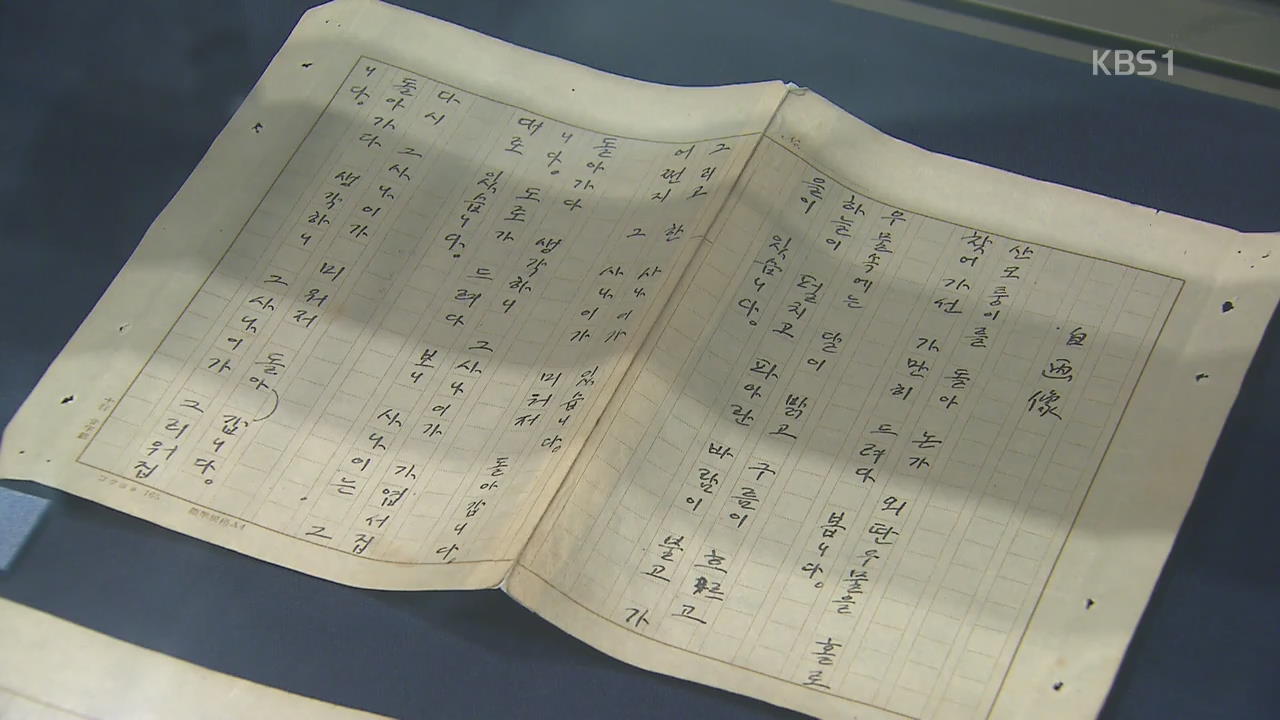 KBS1
自画像
산모퉁이를 돌아 논가 외딴우물을 홀로
찾어가선 가만히 드려다 봅니다.
우물속에는 달이 밝고 구름이 흐르고
하늘이 펼치고 파아란 바람이 불고 가
을이 있습니다.
그리고 한 사나이가 있습니다.
어쩐지 그 사나이가 미워저 돌아 갑니다.
돌아가다 생각하니 그사나이가 가엽서집
니다. 도로가 드려다 보니 사나이는 그
대로 있습니다.
다시 그사나이가 미워저 돌아 갑니다.
돌아가다 생각하니 그사나이가 그리워집
니다.